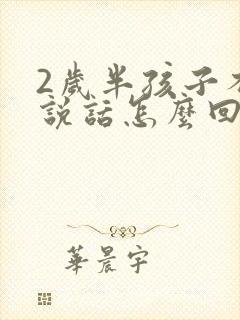 2歲半孩子不
説話怎麼回
華晨宇